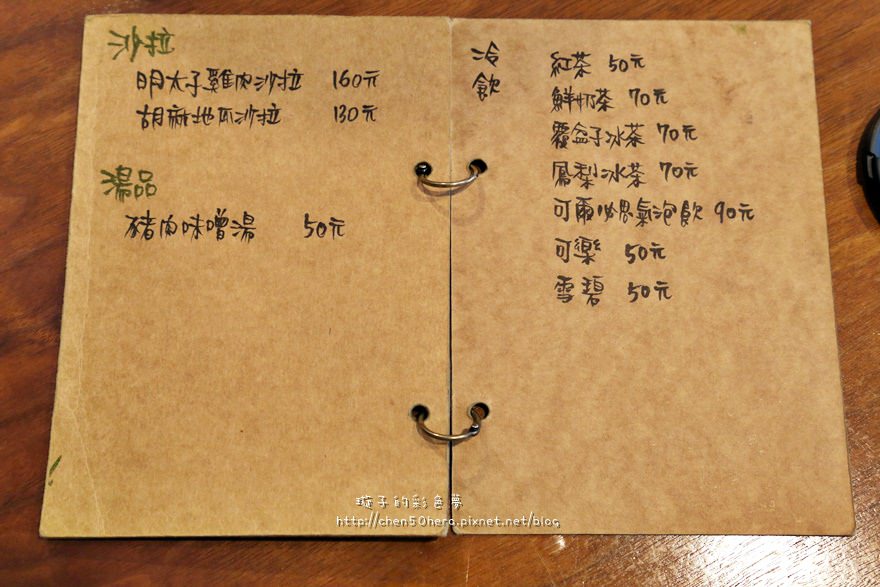 明太子雞肉沙拉 160元
胡麻地瓜沙拉 130元
湯品
豬肉味噌湯 50元
冷飲
紅茶 50元
鮮奶茶 70元
覆盆子冰茶 70元
鳳梨冰茶 70元
可爾必思氣泡飲 90元
可樂 50元
雪碧 50元
璇子的彩色夢
http://chen50hero.pixnet.net/blog